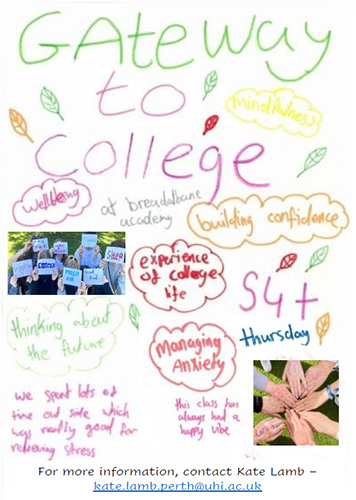 GAteway
to
College
mindfulness
wellbeing
at breadalbane
academy
building confidence
experience
of college
life
S4+
thursday
thinking about
the future
Managing
Anxiety
we spent lots of
time out side which
was really good for
relieving stress
this class has
always had a
happy vibe
For more information, contact Kate Lamb –
kate.lamb.perth@uhi.ac.uk